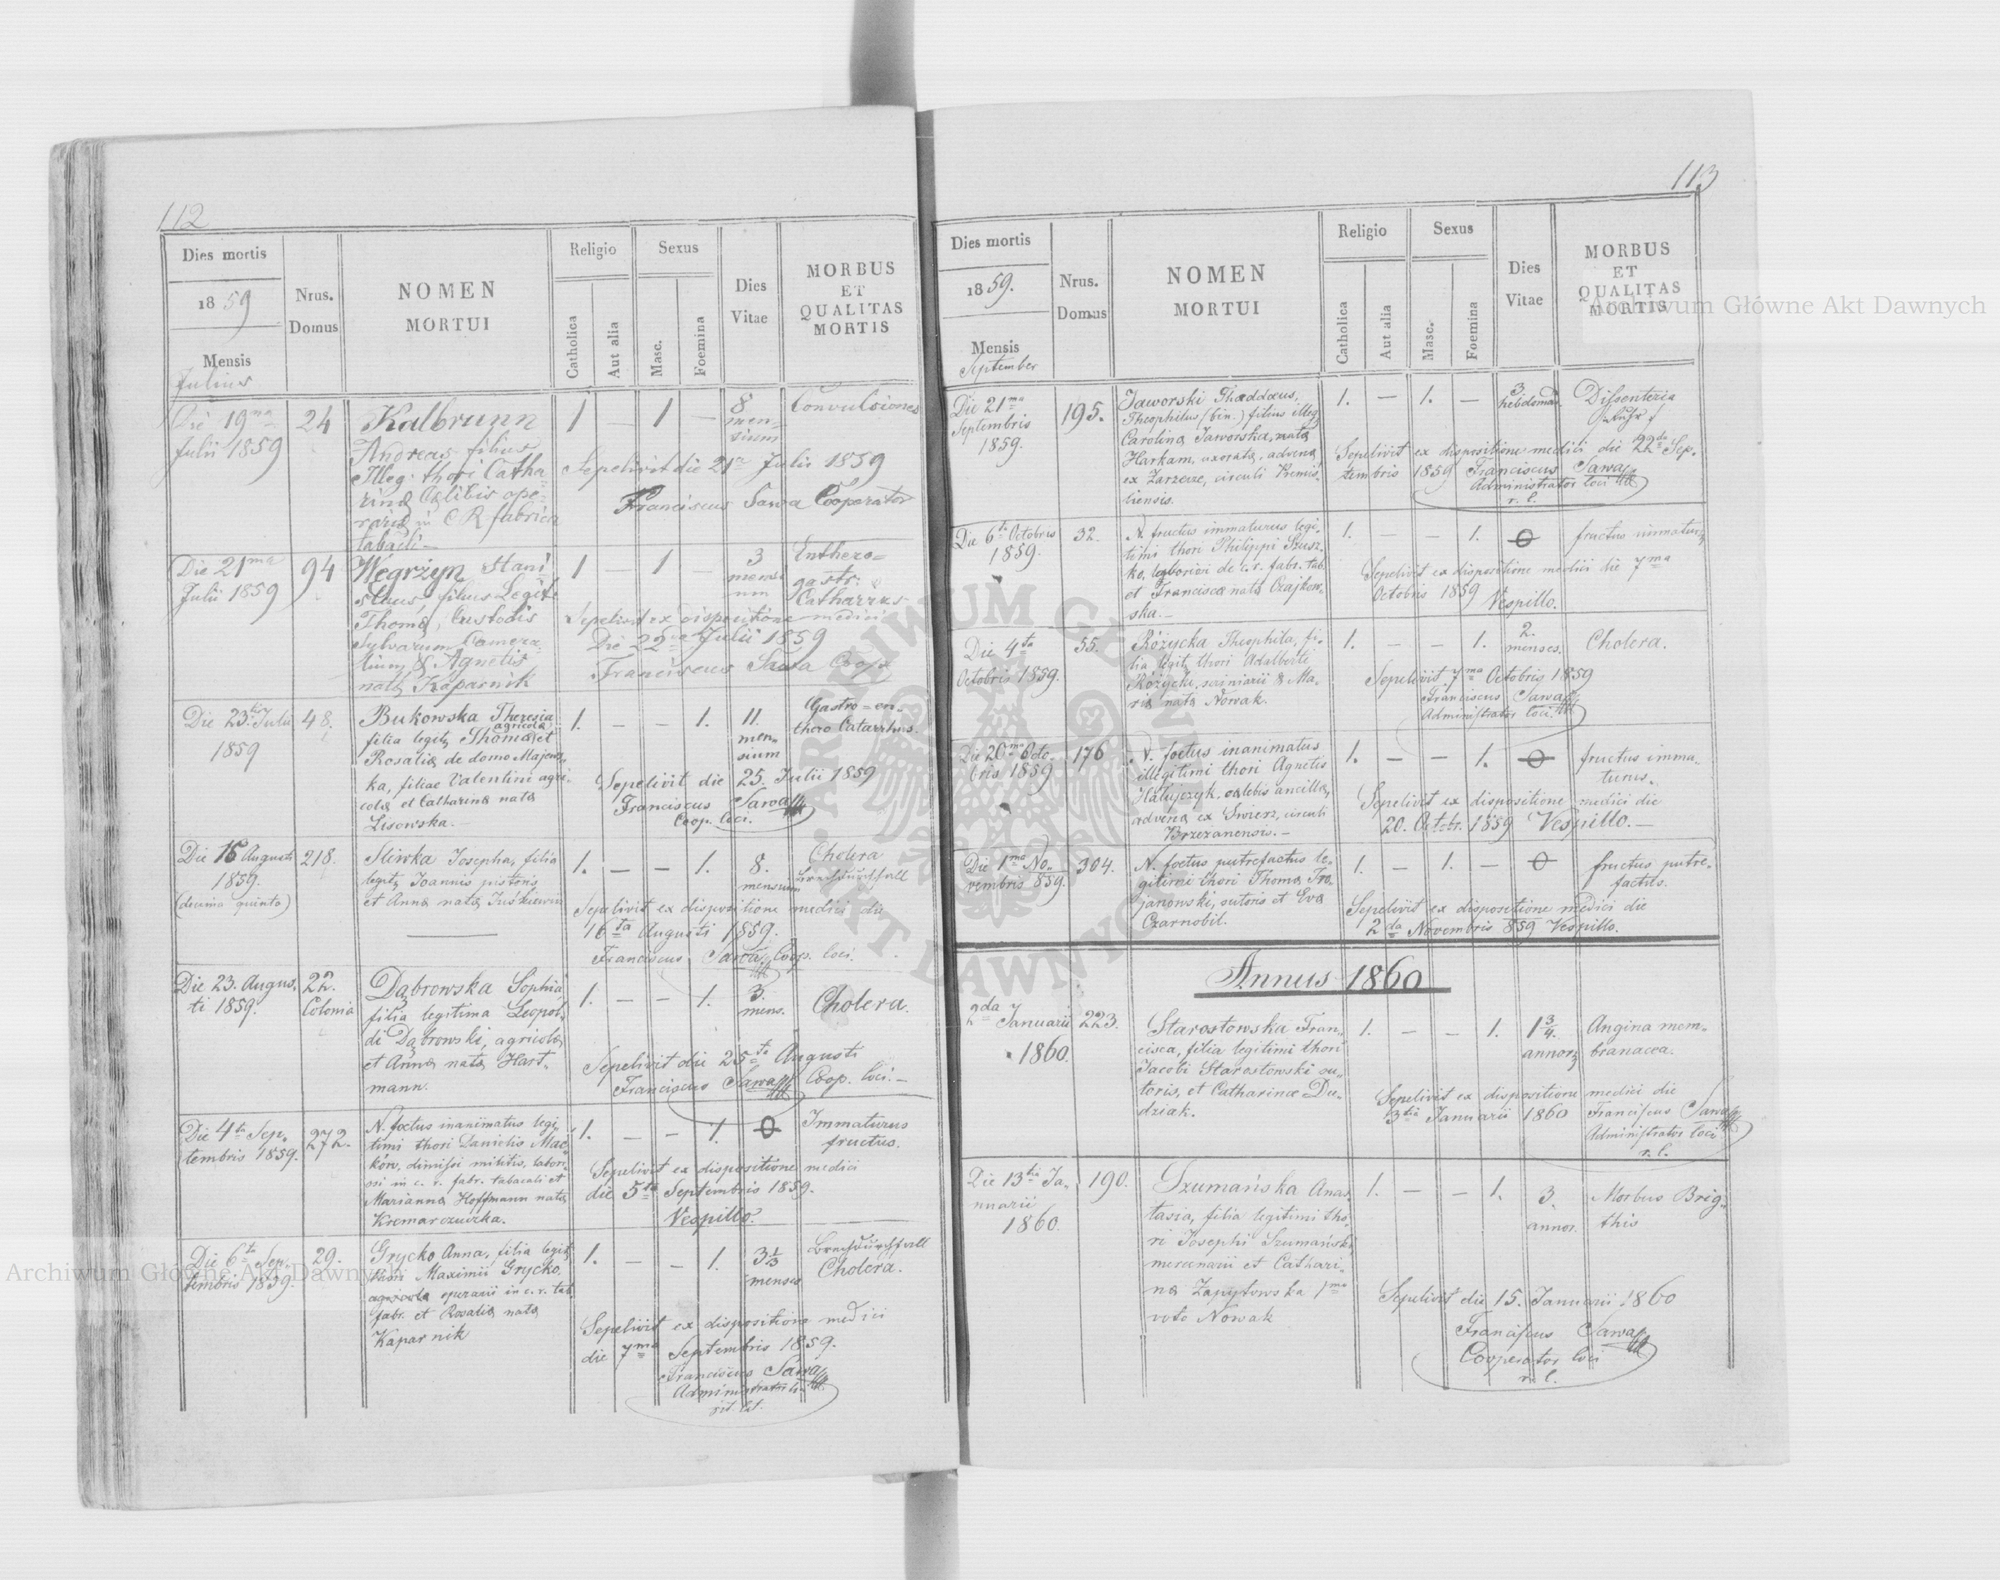 112
Dies mortis
1859
Mensis
Julius
Nrus.
Domus
NOMEN
MORTUI
Religio
Catholica
Aut alia
Sexus
Masc.
Foemina
Dies
Vitae
MORBUS
ET
QUALITAS
MORTIS
Die 19na
Julii 1859
24
Kalbrunn
Andreas filius
Illeg. thori Catha
rinæ Cælibis ope-
rariæ in C R fabrica
tabacli
1 — 1 —
8
men-
sium
Convulsiones
Sepelivit die 21a Julii 1859
Franciscus Sawa Cooperator
Die 21ma
Julii 1859
94
Węgrzyn Stani
slaus, filius Legit
Thomæ, Custodis
Sylvarum Camera
lium & Agnetis
natæ Kaparnik
1 — 1 —
3
mensi
um
Enthero=
gastr:
Catharrus
Sepelivit ex dispositione medici
Die 22da Julii 1859
Franciscus Sawa Coop
Die 23tia Julii
1859
48.
Bukowska Theresia
filia legit, Thomæ agricolæ et
Rosaliæ de domo Majews
ka, filiae Valentini agri-
colæ et Catharinæ natæ
Lisowska.—
1. — — 1.
11.
men-
sium
Gastro-en-
thero Catarrhus.
Sepelivit die 25. Julii 1859
Franciscus Sawa
Coop. loci.
Die 15 Augusti
1859.
(decima quinta)
218.
Sliwka Josepha, filia
legit, Joannis pistoris
et Annæ natæ Juśkiewicz
1. — — 1.
8.
mensium
Cholera
Brechdürchfall
Sepelivit ex dispositione medici die
16ta Augusti 1859.
Franciscus Sawa Coop. loci.
Die 23. Augus-
ti 1859.
22.
Colonia
Dąbrowska Sophia
filia legitima Leopol-
di Dąbrowski, agricolæ
et Annæ natæ Hart-
mann.
1. — — 1.
3.
mens.
Cholera.
Sepelivit die 25ta Augusti
Franciscus Sawa Coop. loci.—
Die 4ta Sep-
tembris 1859.
272.
N. foetus inanimatus legi-
timi thori Danielis Mać-
ków, dimissi militis, labori-
osi in c. r. fabr. tabacali et
Mariannæ Hoffmann natæ
Kremarczuczka.
1. — — 1. 0
Immaturus
fructus.
Sepelivit ex dispositione medici
die 5ta Septembris 1859.
Vespillo.
Die 6ta Sep-
tembris 1859.
29.
Grycko Anna, filia legit,
thori Maximii Grycko,
operarii in c. r. tab
fabr. et Rosaliæ natæ
Kaparnik
1. — — 1.
3 1/3
menses
Brechdürchfall
Cholera.
Sepelivit ex dispositione medici
die 7ma Septembris 1859.
Franciscus Sawa
Administrator
113
Dies mortis
1859.
Mensis
September
Nrus.
Domus
NOMEN
MORTUI
Religio
Catholica
Aut alia
Sexus
Masc.
Foemina
Dies
Vitae
MORBUS
ET
QUALITAS
MORTIS
Die 21ma
Septembris
1859.
195.
Jaworski Thaddæus,
Theophilus (bin.) filius illeg,
Carolinæ Jaworska, natæ
Harkam, uxoratæ, advenæ
ex Zarzecze, circuli Premis-
liensis.
1. — 1. —
3
hebdomad.
Dissenteria
Sepelivit ex dispositione medici die 22da Sep-
tembris 1859 Franciscus Sawa
Administrator loci
r. l.
Die 6ta Octobris
1859.
32.
N. fructus immaturus legi-
timi thori Philippi Szusz-
ko, laboriosi de c. r. fabr. tab.
et Franciscæ natæ Czajkow-
ska.—
1. — — 1. 0
fructus immatur,
Sepelivit ex dispositione medici die 7ma
Octobris 1859 Vespillo.
Die 4ta
Octobris 1859.
55.
Różycka Theophila, fi-
lia legit, thori Adalberti
Różycki, & Ma-
riæ natæ Nowak.
1. — — 1.
2.
menses.
Cholera.
Sepelivit 7ma Octobris 1859
Franciscus Sawa
Administrator loci.
Die 20ma Octo-
bris 1859
176
N. foetus inanimatus
illegitimi thori Agnetis
Hałujczyk, cælebis ancillæ,
advenæ ex Swierz, circuli
Brzezanensis.—
1. — — 1. 0
fructus imma-
turus.
Sepelivit ex dispositione medici die
20. Octobr. 1859 Vespillo.—
Die 1ma No-
vembris 859.
304.
N. foetus putrefactus le-
gitimi thori Thomæ Tro-
janowski, sutoris et Evæ
Czarnobil.
1. — 1. — 0
fructus putre-
factus.
Sepelivit ex dispositione medici die
2da Novembris 859 Vespillo.
Annus 1860
2da Januarii
1860.
223.
Starostowska Fran-
cisca, filia legitimi thori
Jacobi Starostowski su-
toris, et Catharinæ Du-
dziak.
1. — — 1.
1 3/4.
annor,
Angina mem-
branacea.
Sepelivit ex dispositione medici die
3tia Januarii 1860 Franciscus Sawa
Administrator loci
r. l.
Die 13tia Ja-
nuarii
1860.
190.
Szumańska Anas-
tasia, filia legitimi tho-
ri Josephi Szumański
mercenarii et Cathari-
næ Zapytowska 1mo
voto Nowak
1. — — 1.
3.
annor.
Morbus Brig-
this
Sepelivit die 15. Januarii 1860
Franciscus Sawa
Cooperator loci
r. l.
Archiwum Główne Akt Dawnych
Archiwum Główne Akt Dawnych
ARCHIWUM GŁÓWNE AKT DAWNYCH